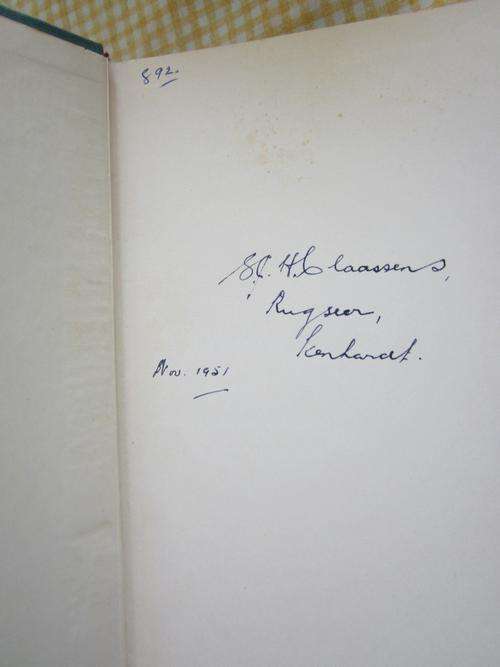 892.
H. Claassens,
Rugseer,
Kenhardt.
Nov. 1951